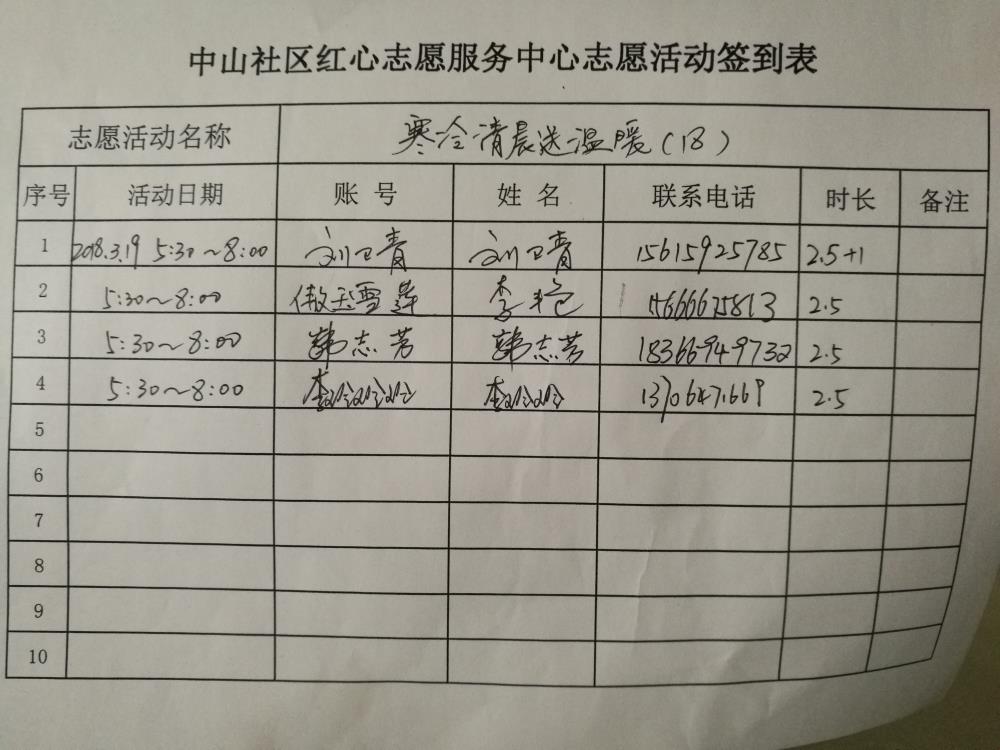 中山社区红心志愿服务中心志愿活动签到表
志愿活动名称 寒冷清晨送温暖(18)
序号 活动日期 账号 姓名 联系电话 时长 备注
1 2018.3.19 5:30~8:00 刘卫青 刘卫青 15615925785 2.5+1
2 5:30~8:00 李艳 2.5
3 5:30~8:00 韩志芳 韩志芳 18366949732 2.5
4 5:30~8:00 2.5
5
6
7
8
9
10